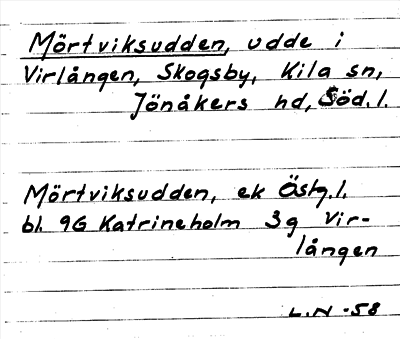 Mörtviksudden, udde i
Virlången, Skogsby, Kila sn,
Jönåkers hd, Söd.l.
Mörtviksudden, ek Östg.l.
bl. 9G Katrineholm 3g Vir-
lången
L.N -58